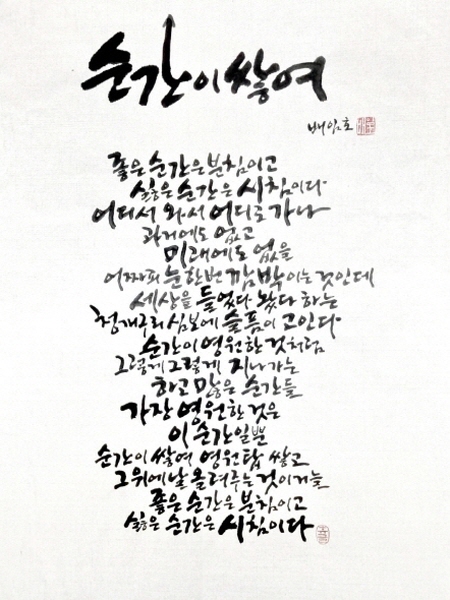 순간이 쌓여
배임호
좋은 순간은 분침이고
싫은 순간은 시침이다
어디서 와서 어디로 가나
과거에도 없고
미래에도 없을
어짜피 눈 한번 깜박이는 것인데
세상을 들었다 놨다 하는
청개구리 심보에 슬픔이 고인다
순간이 영원한 것처럼
그렇게 그렇게 지나가는
하고 많은 순간들
가장 영원한 것은
이 순간일뿐
순간이 쌓여 영원탑 쌓고
그 위에 날 올려주는 것이거늘
좋은 순간은 분침이고
싫은 순간은 시침이다